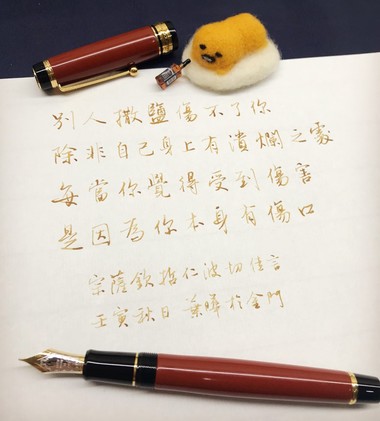 別人撒鹽傷不了你
除非自己身上有潰爛之處
每當你覺得受到傷害
是因為你本身有傷口
宗薩欽哲仁波切佳言
壬寅秋日 葉曄於金門